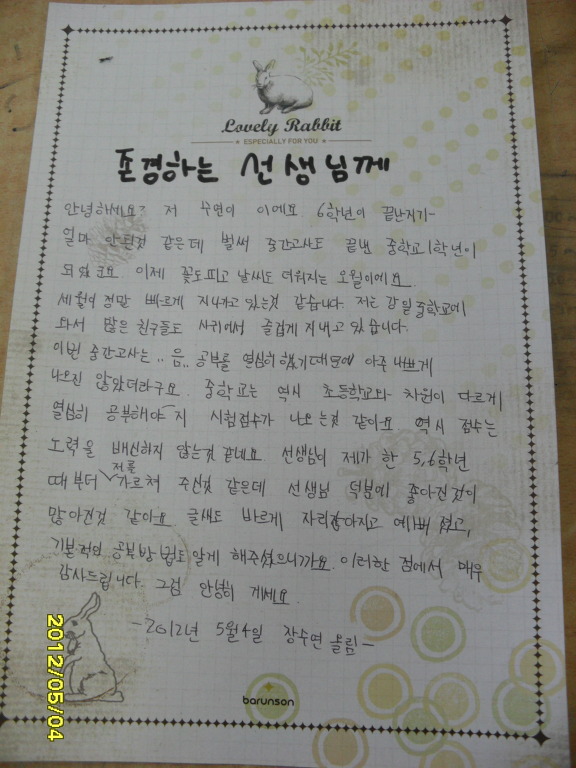 Lovely Rabbit
ESPECIALLY FOR YOU
존경하는 선생님께
안녕하세요? 저 수연이 이에요 6학년이 끝난지가
얼마 안된것 같은데 벌써 중간고사도 끝낸 중학교1학년이
되었네요. 이제 꽃도피고 날씨도 더워지는 오월이에요.
세월이 정말 빠르게 지나가고 있는것 같습니다. 저는 강일중학교에
와서 많은 친구들도 사귀어서 즐겁게 지내고 있습니다.
이번 중간고사는.. 음.. 공부를 열심히 했기때문에 아주 나쁘게
나오진 않았더라구요. 중학교는 역시 초등학교와 차원이 다르게
열심히 공부해야지 시험점수가 나오는것 같아요 역시 점수는
노력을 배신하지 않는것 같네요 선생님이 제가 한 5,6학년
때부터 저를 가르쳐 주신것 같은데 선생님 덕분에 좋아진것이
많아진것 같아요. 글씨도 바르게 자리잡아지고 예뻐 졌고,
기본적인 공부방법도 알게 해주셨으니까요. 이러한 점에서 매우
감사드립니다. 그럼 안녕히 계세요.
-2012년 5월4일 장수연 올림-
barunson
2012/05/04